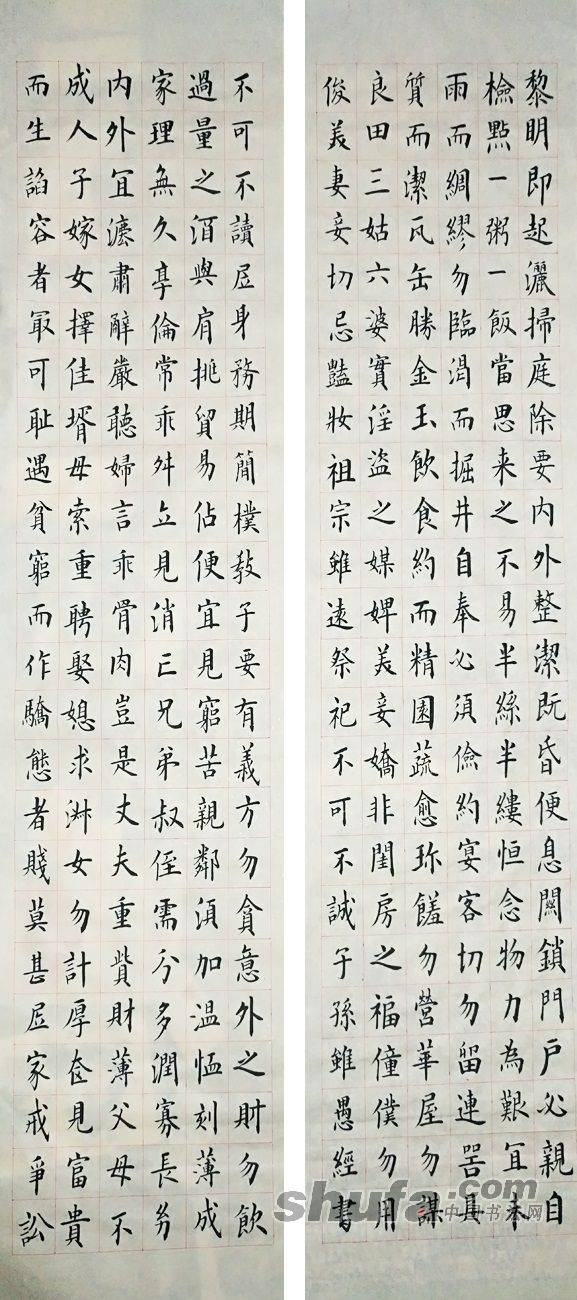 黎明即起灑掃庭除要内外整潔既昏便息關鎖門戶必親自
檢點一粥一飯當思来之不易半絲半縷恒念物力為艱宜未
雨而綢繆勿臨渴而掘井自奉必須儉約宴客切勿留連器具
質而潔瓦缶勝金玉飲食約而精園蔬愈珍饈勿營華屋勿謀
良田三姑六婆實淫盜之媒婢美妾嬌非閨房之福僮僕勿用
俊美妻妾切忌豔妝祖宗雖遠祭祀不可不誠子孫雖愚經書
不可不讀居身務期簡樸教子要有義方勿貪意外之財勿飲
過量之酒與肩挑貿易佔便宜見窮苦親鄰須加温恤刻薄成
家理無久享倫常乖舛立見消亡兄弟叔侄需分多潤寡長幼
内外宜灋肅辭嚴聽婦言乖骨肉豈是丈夫重貲財薄父母不
成人子嫁女擇佳壻毋索重聘娶媳求淑女勿計厚奩見富貴
而生諂容者最可恥遇貧窮而作驕態者賤莫甚居家戒爭訟
shufa.com
中国书法网